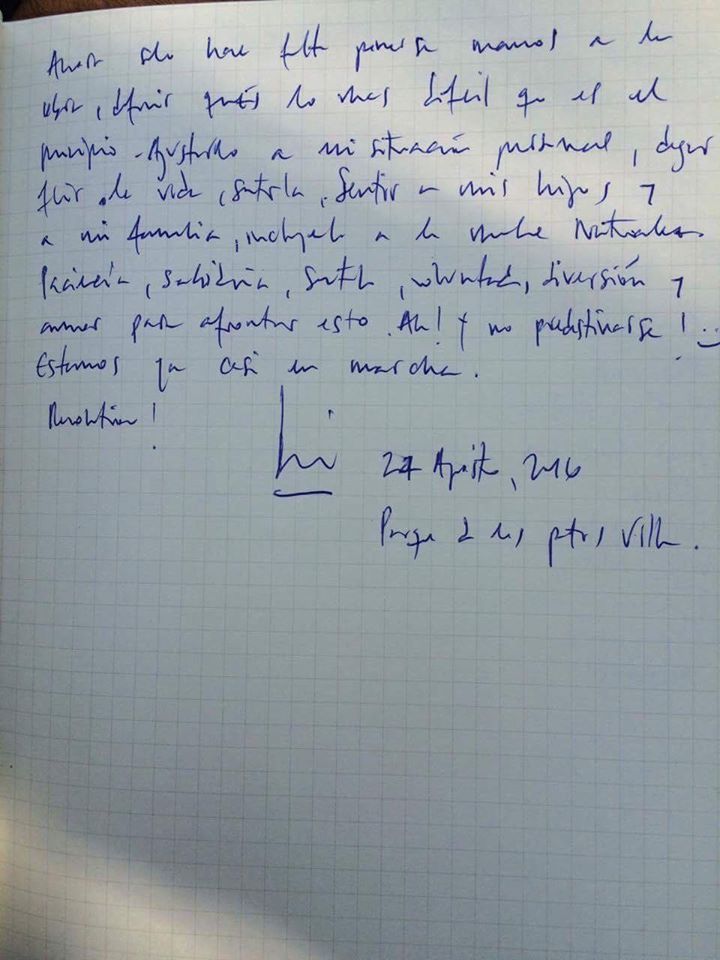 Ahora solo hace falta ponerse manos a la
obra, definir quizás lo mas dificil que es el
principio. Ajustarlo a mi situación personal, dejar
fluir la vida, sentirla, sentir a mis hijos y
a mi familia, incluyendo a la madre Naturaleza.
Paciencia, sabiduria, voluntad, diversión y
amor para afrontar esto. Ah! y no predestinarse!
Estamos ya casi en marcha.
27 Agosto, 2016
Parque de los patos Villa.